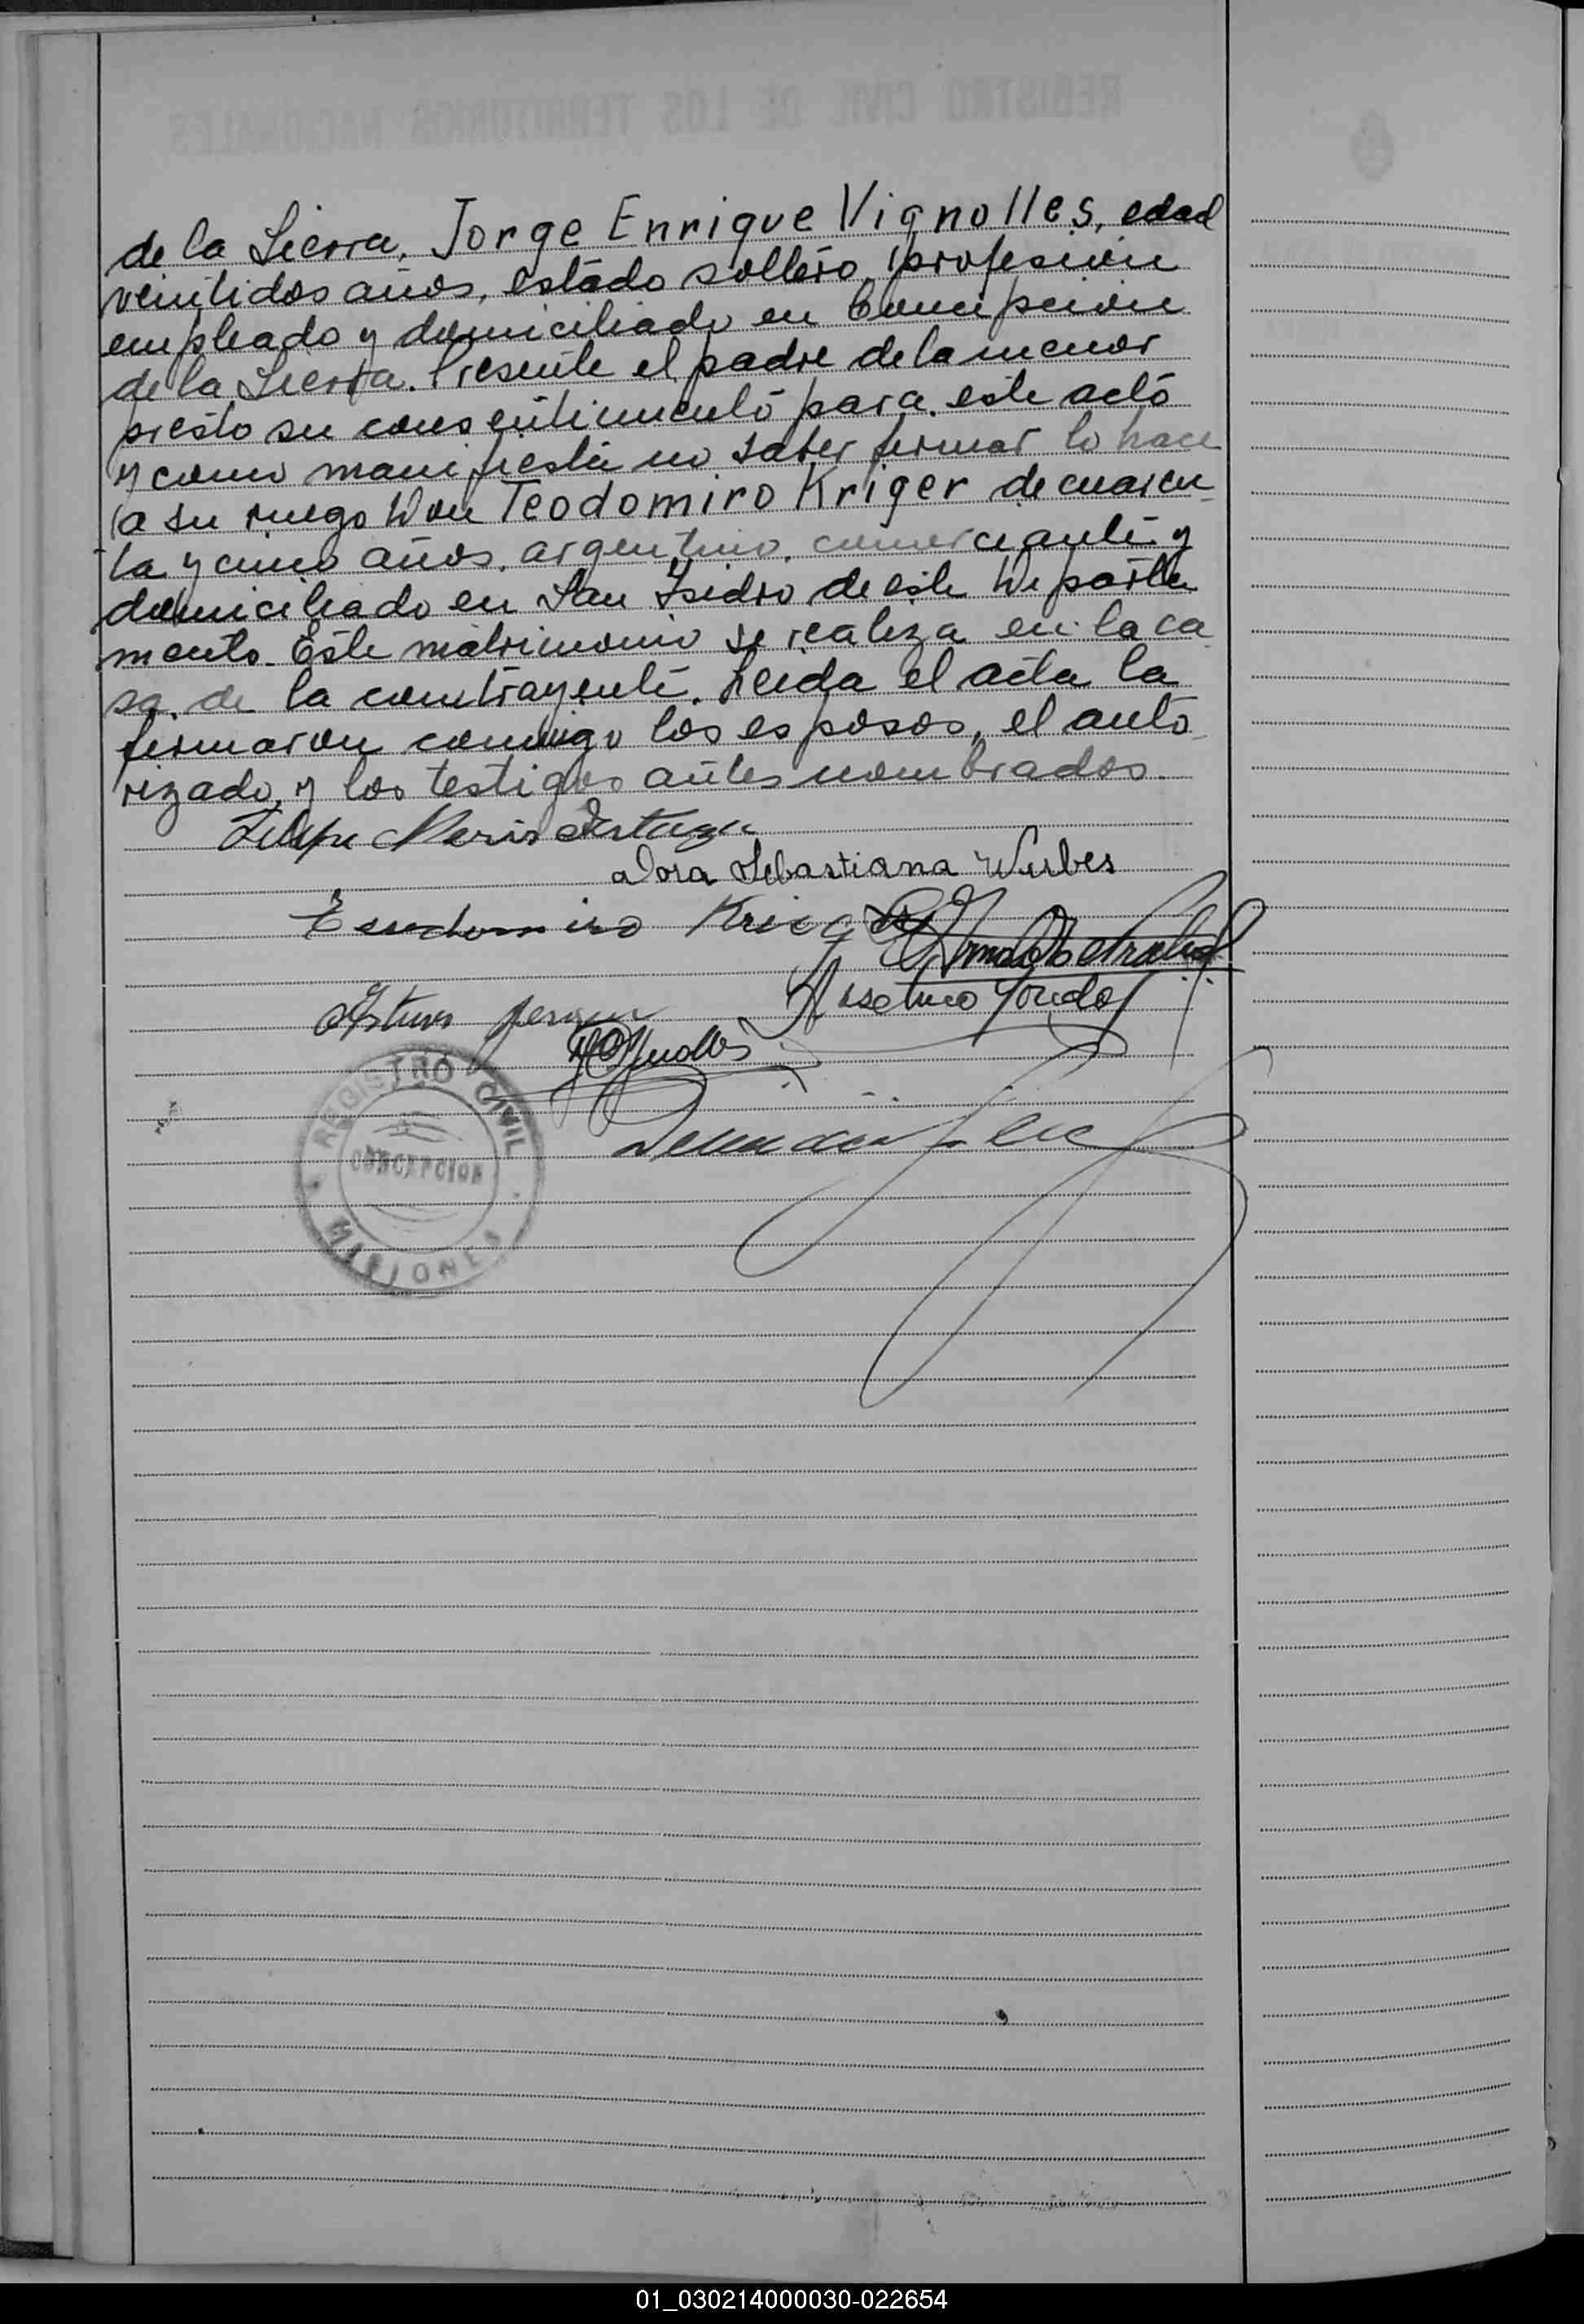 de la Sierra, Jorge Enrique Vignolles, edad
veintidos años, estado soltero, profesión
empleado y domiciliado en Concepción
de la Sierra. Presente el padre de la menor
presto su consentimiento para este acto
y como manifiesta no saber firmar lo hace
a su ruego Don Teodomiro Kriger de cuaren-
ta y cinco años, argentino, comerciante y
domiciliado en San Isidro de este Departa
mento. Este matrimonio se realiza en la ca
sa de la contrayente. Leida el acta la
firmaron conmigo los esposos, el auto
rizado, y los testigos antes nombrados.
Dora Sebastiana Wirbes
Kriger
Arturo
Anselmo
REGISTRO CIVIL
CONCEPCION
MISIONES
01_030214000030-022654